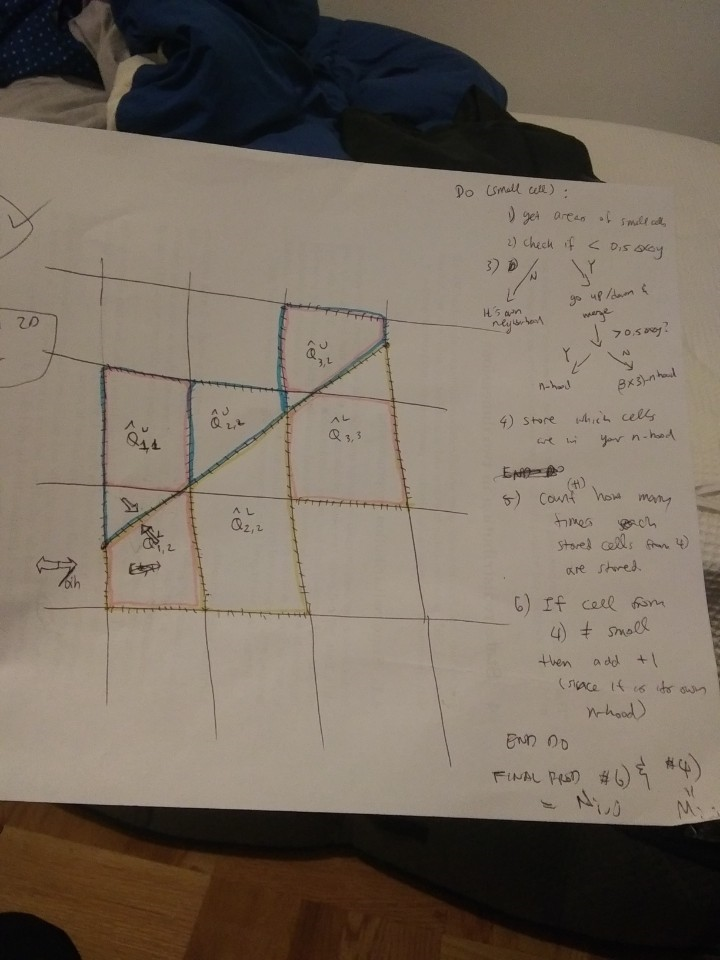 2D
Q̂ᵁ₃,₂
Q̂ᵁ₁,₁
Q̂ᵁ₂,₂
Q̂ᴸ₃,₃
Q̂ᴸ₂,₂
Q̂ᴸ₁,₂
Do (small cell) :
1) get areas of small cells
2) Check if < 0.5 ΔxΔy
3)
N
Y
It's own
neighborhood
go up/down &
merge
> 0.5 ΔxΔy?
Y
N
n-hood
(3×3)-n-hood
4) store which cells
are in your n-hood
5) Count (+1) how many
times each
stored cells from 4)
are stored.
6) If cell from
4) ≠ small
then add +1
(since it is its own
n-hood)
END DO
FINAL PROD #6) & #4)
= Ni,j